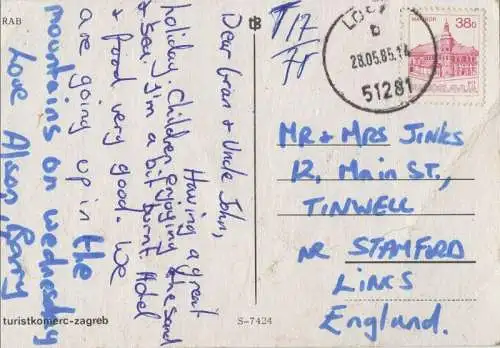 RAB
Dear Gran + Uncle John,
Having a great
holiday. Children enjoying the sand
+ sea. I'm a bit burnt. Hotel
+ food very good. We
are going up in the
mountains on wednesday
Love Alison, Barry
turistkomerc-zagreb
S-7424
T 17
28.05.85.14
51281
MARIBOR
380
JUGOSLAVIJA
MR + MRS JINKS
12, MAIN ST.,
TINWELL
NR STAMFORD
LINCS
England.